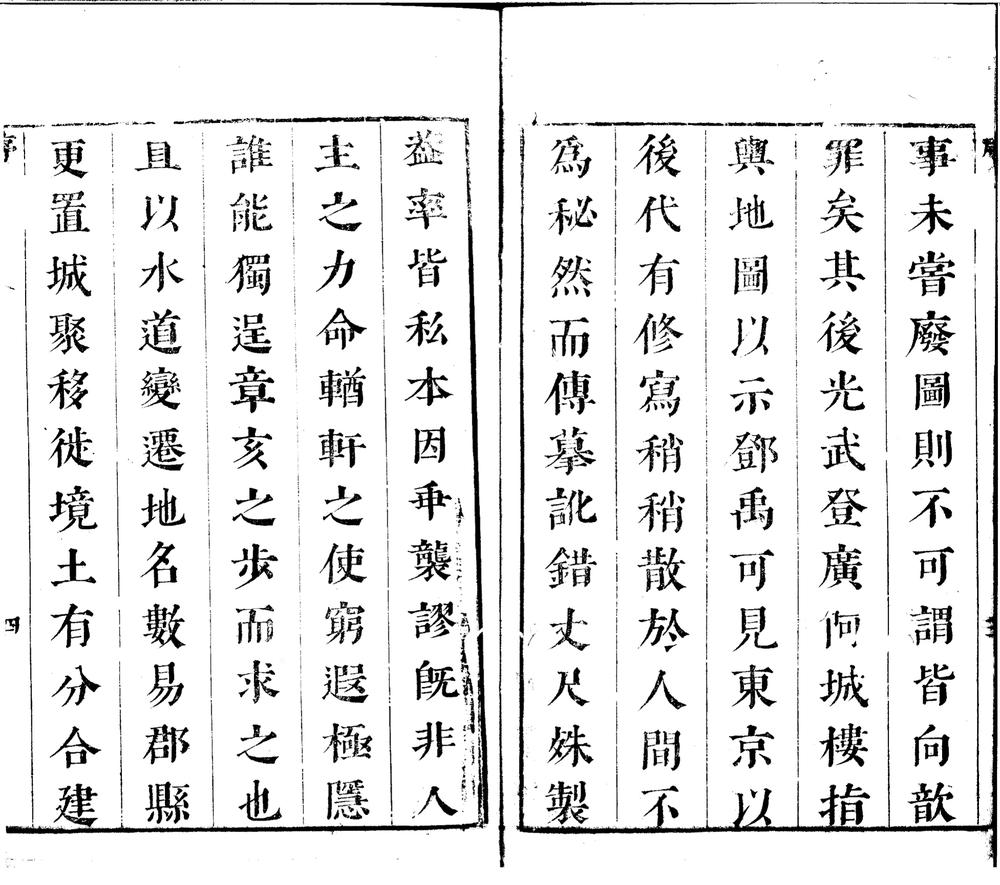 事未嘗廢圖則不可謂皆向歆
罪矣其後光武登廣阿城樓指
輿地圖以示鄧禹可見東京以
後代有修寫稍稍散於人間不
爲秘然而傳摹訛錯丈尺姝製
葢率皆私本因乖襲謬旣非人
主之力命輶軒之使窮遐極隱
誰能獨逞章亥之步而求之也
且以水道變遷地名數易郡縣
更置城聚移徙境土有分合建
序
四